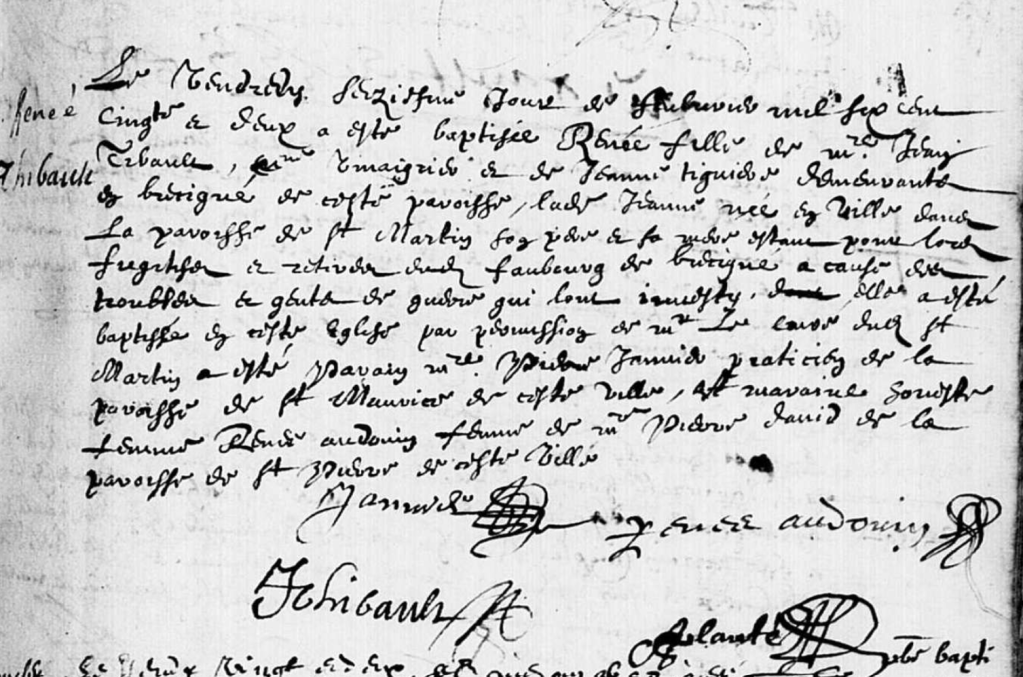 Le Vendredy seziesme jour de febvrier mil six cent
René
cinqte et deux a esté baptisée Renée fille de mre Jean
Thibault
Tibault, et de Jeanne tiguiere demeurante
en brecigné de ceste paroisse, lade Jeanne née en Ville dans
La paroisse de st Martin son pere et sa mere estant pour lors
fugitifs et retirés dud faubourg de brecigne a cause des
troubles et gents de guerre qui l'ont investy, elle a esté
baptisée en ceste Eglise par permission de mr Le curé dud st
Martin a esté parain mre Pierre Jannier praticien de la
paroisse de st Maurice de ceste ville, et maraine honeste
femme Renée audouin femme de mre Pierre david de la
paroisse de st Pierre de ceste Ville
Jannier Renee audouin
Thibault
Planté pbre bapti